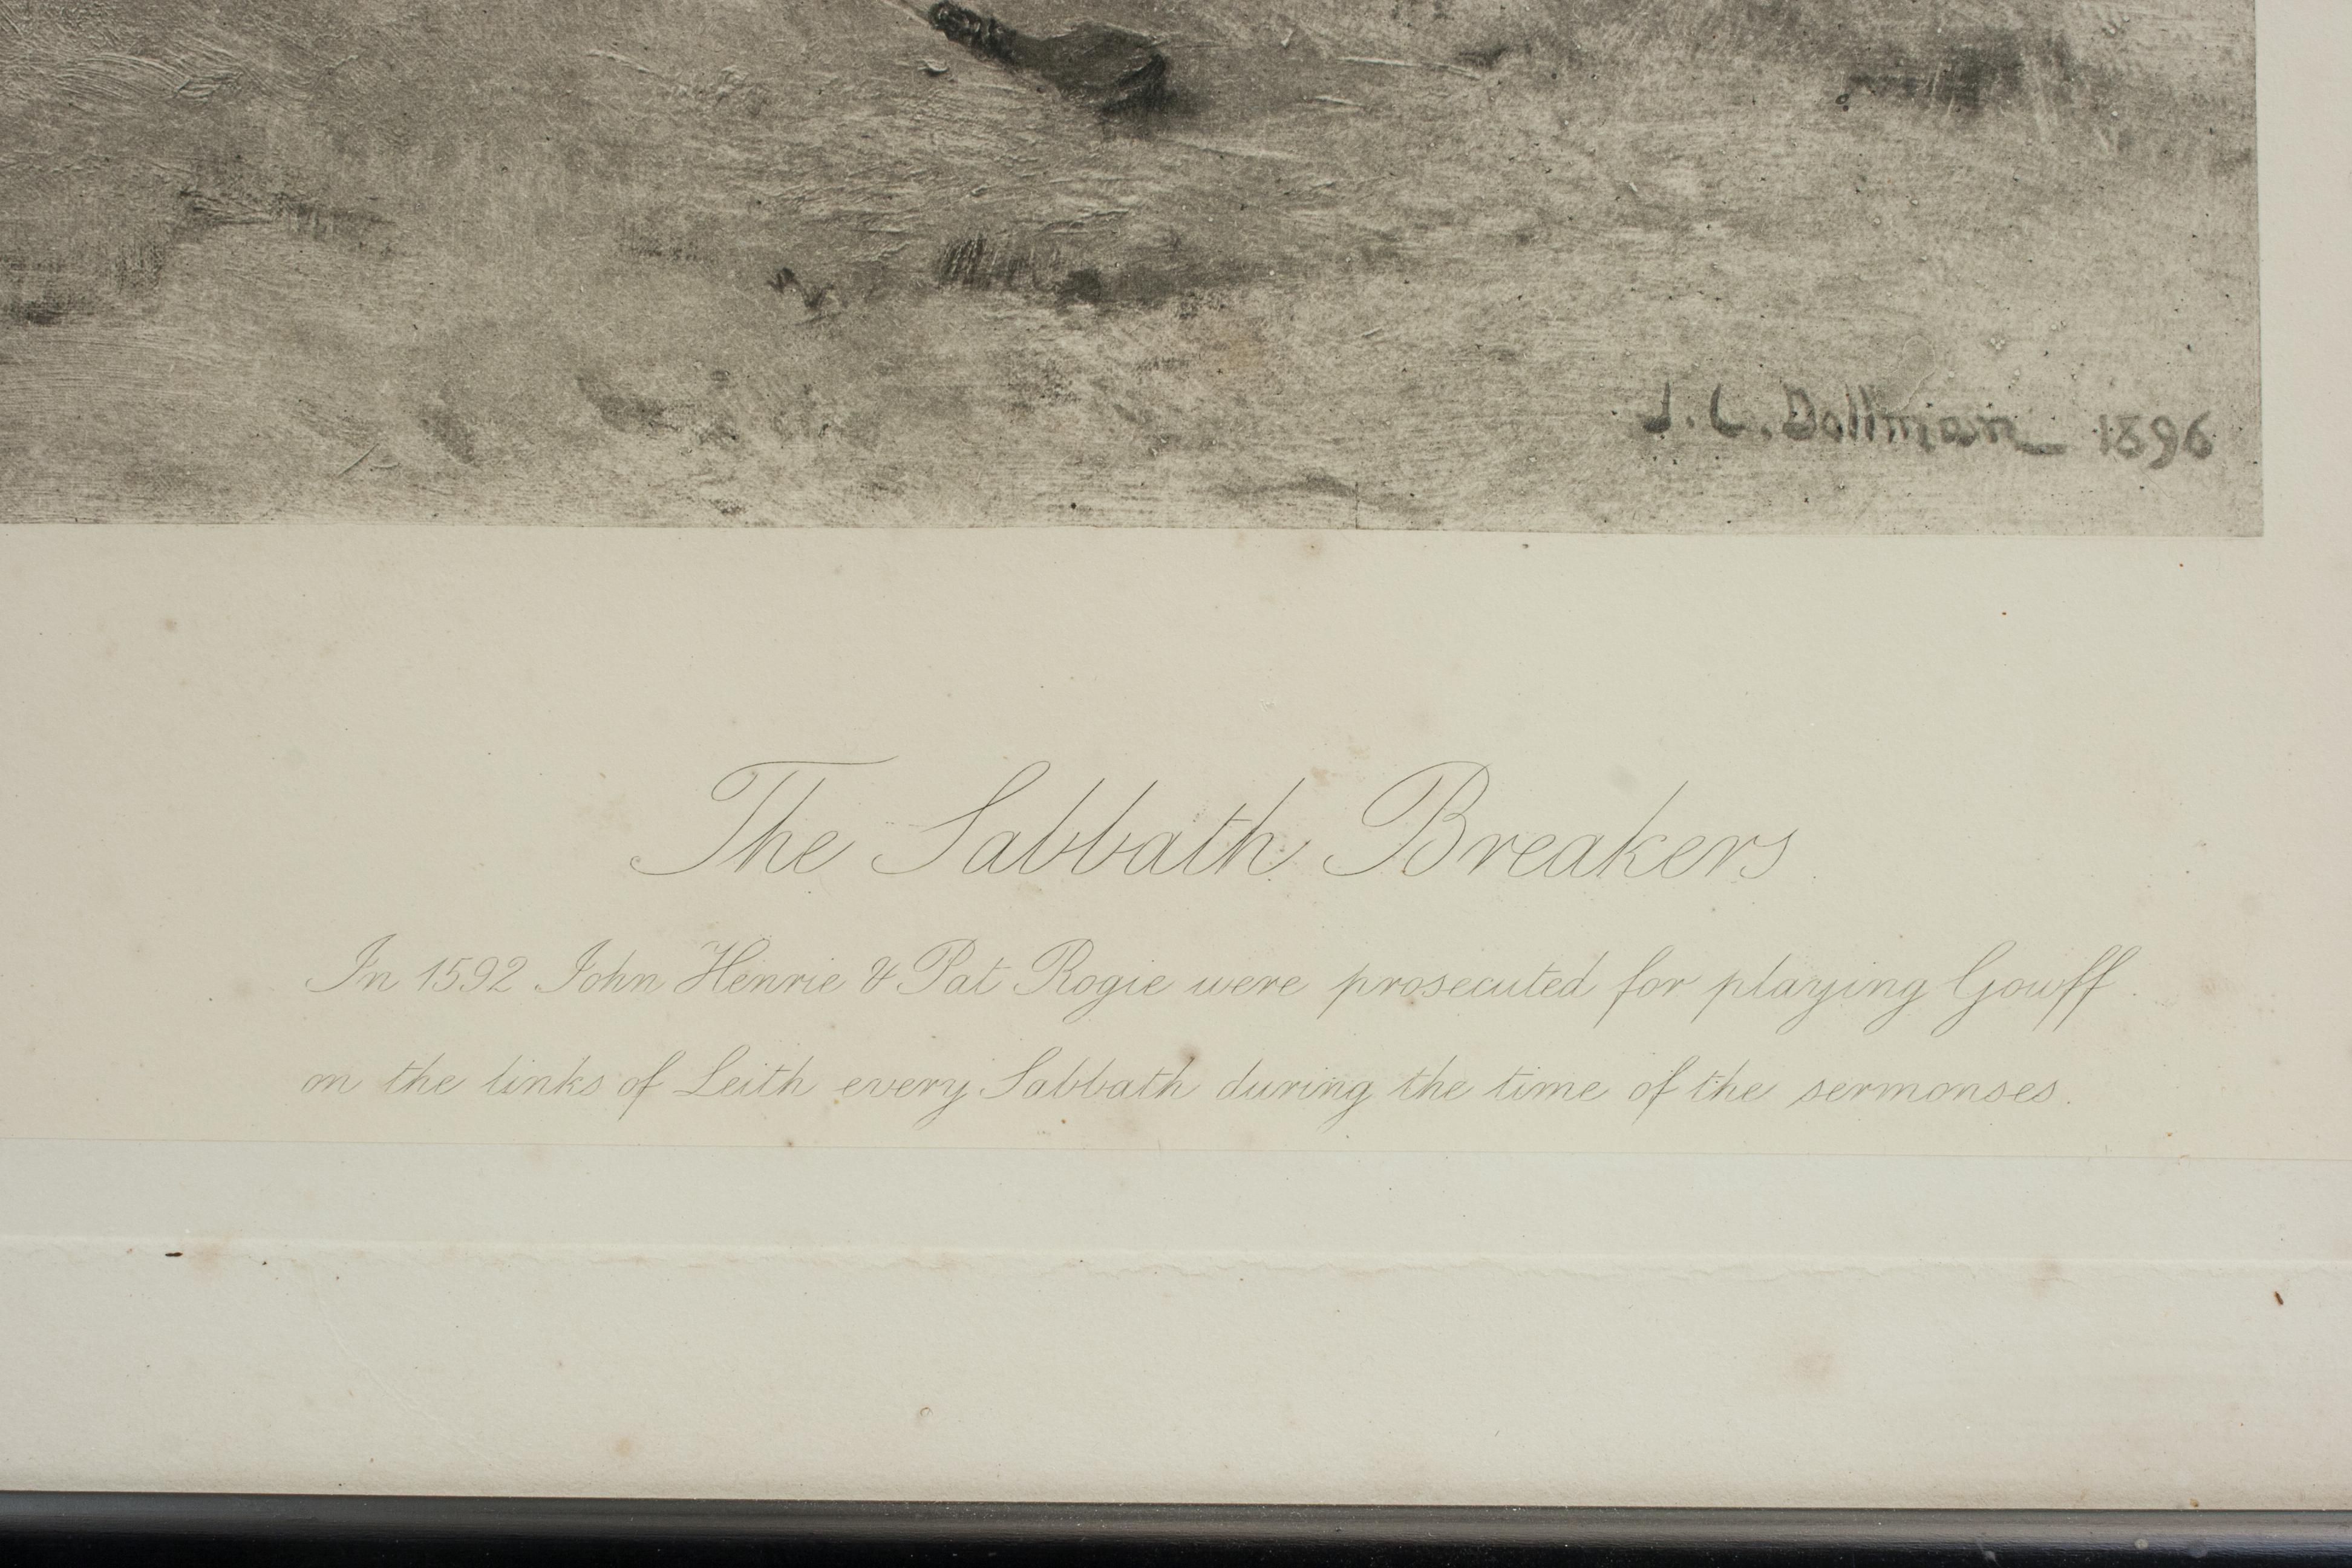 J. C. Dollman 1896
The Sabbath Breakers
In 1592 John Henrie & Pat Rogie were prosecuted for playing Gowff
on the links of Leith every Sabbath during the time of the sermonses.